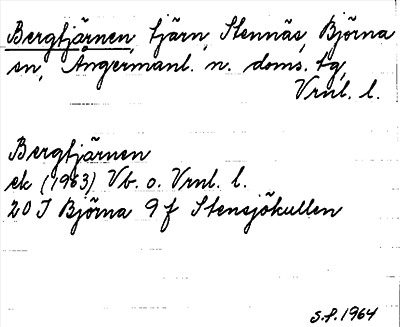 Bergtjärnen, tjärn, Stennäs, Björna
sn, Ångermanl. n. doms. tg,
Vrnl. l.
Bergtjärnen
ek (1963) Vb. o. Vrnl. l.
20 J Björna 9 f Stensjökullen
S.F. 1964